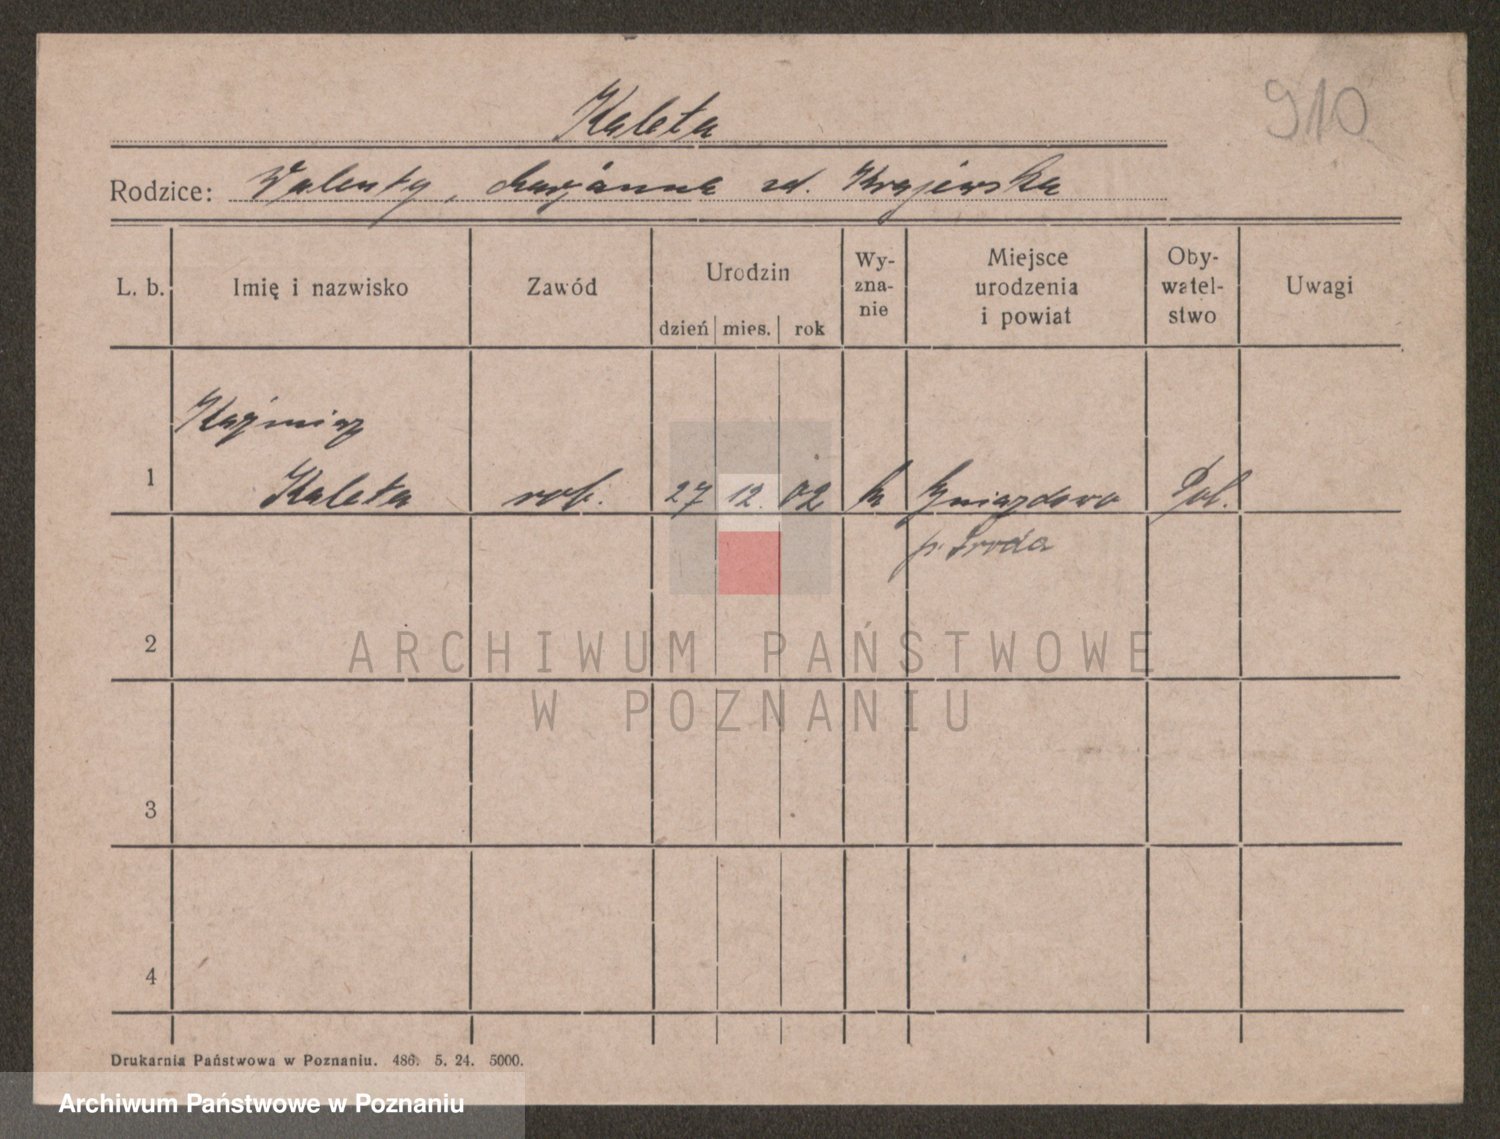 910
Kaleta
Rodzice: Walenty, Marjanna zd. Krajewska
L. b. Imię i nazwisko Zawód Urodzin Wy-zna-nie Miejsce urodzenia i powiat Oby-watel-stwo Uwagi
dzień mies. rok
Kaźmierz
1 Kaleta rob. 27 12. 02 k Gniazdowo Pol.
p. Środa
2
3
4
Drukarnia Państwowa w Poznaniu. 486. 5. 24. 5000.
ARCHIWUM PAŃSTWOWE
W POZNANIU
Archiwum Państwowe w Poznaniu